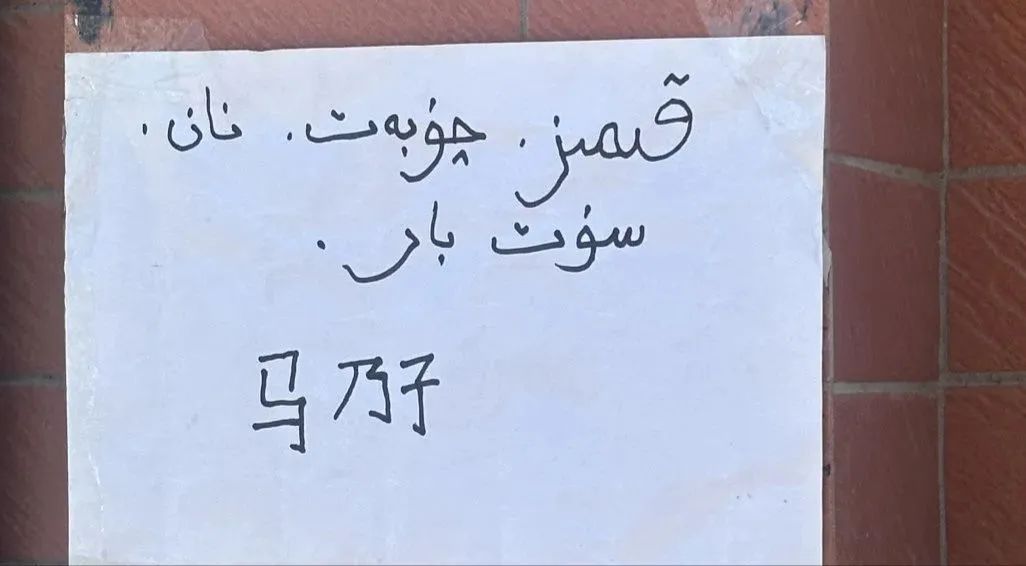 قىمىز. چۇبەت. نان.
سۇت بار.
马乃子